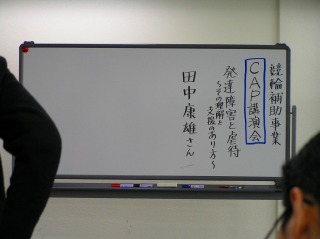 競輪補助事業
CAP講演会
発達障害と虐待
～その理解と
支援のあり方～
田中康雄さん